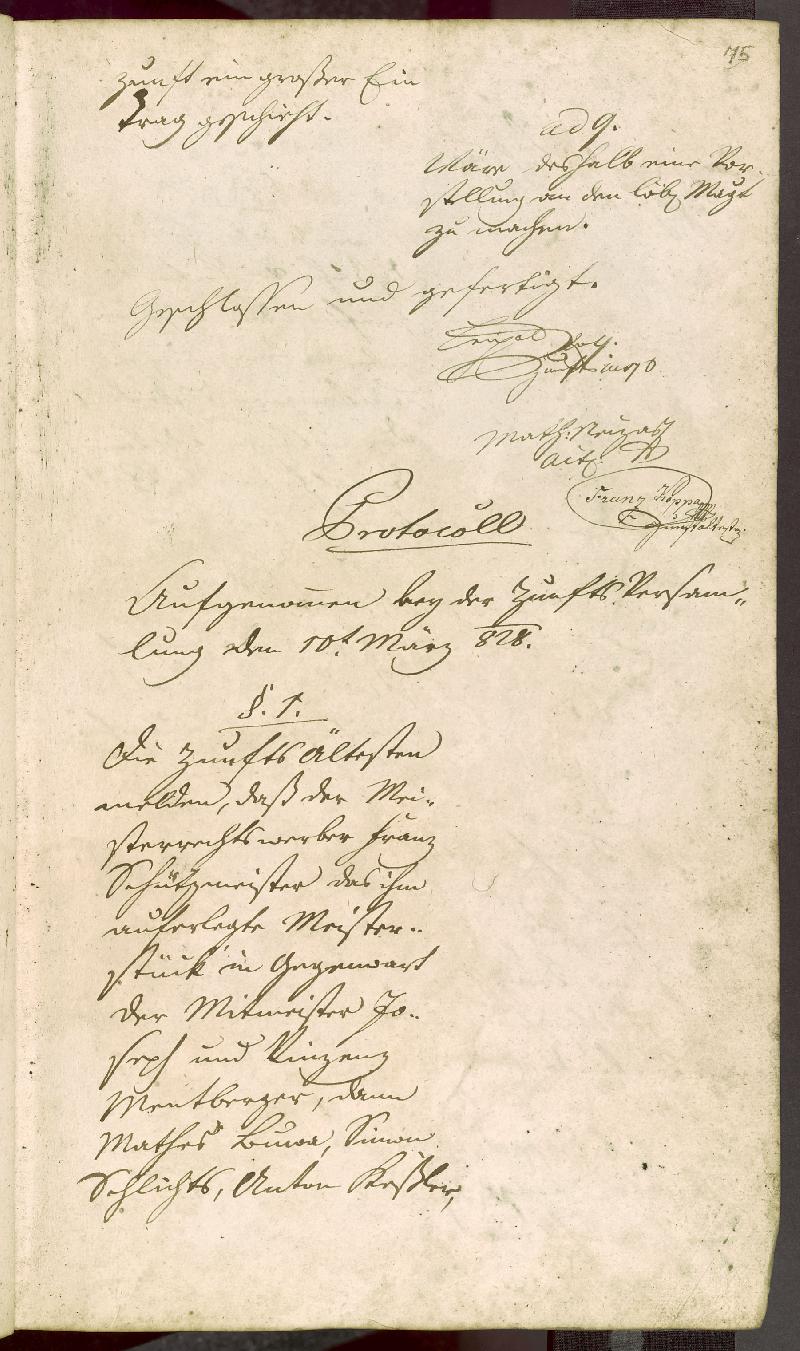 75
Zunft ein großer Ein
trag geschieht.
ad 9.
Wäre deshalb eine Vor-
stellung an den löbl Magt
zu machen.
Geschlossen und gefertigt.
Math:
Franz
Zunftältester
Protocoll
Aufgenommen bey der Zunfts Versam„
lung den 10t März 828.
§. 1.
Die Zunfts Ältesten
melden, daß der Mei-
sterrechtswerber Franz
Schützmeister das ihm
auferlegte Meister-
stück in Gegenwart
der Mitmeister Jo-
seph und Vinzenz
Mentberger, dann
Mathes Buwa, Simon
Schlichts, Anton Keßler,